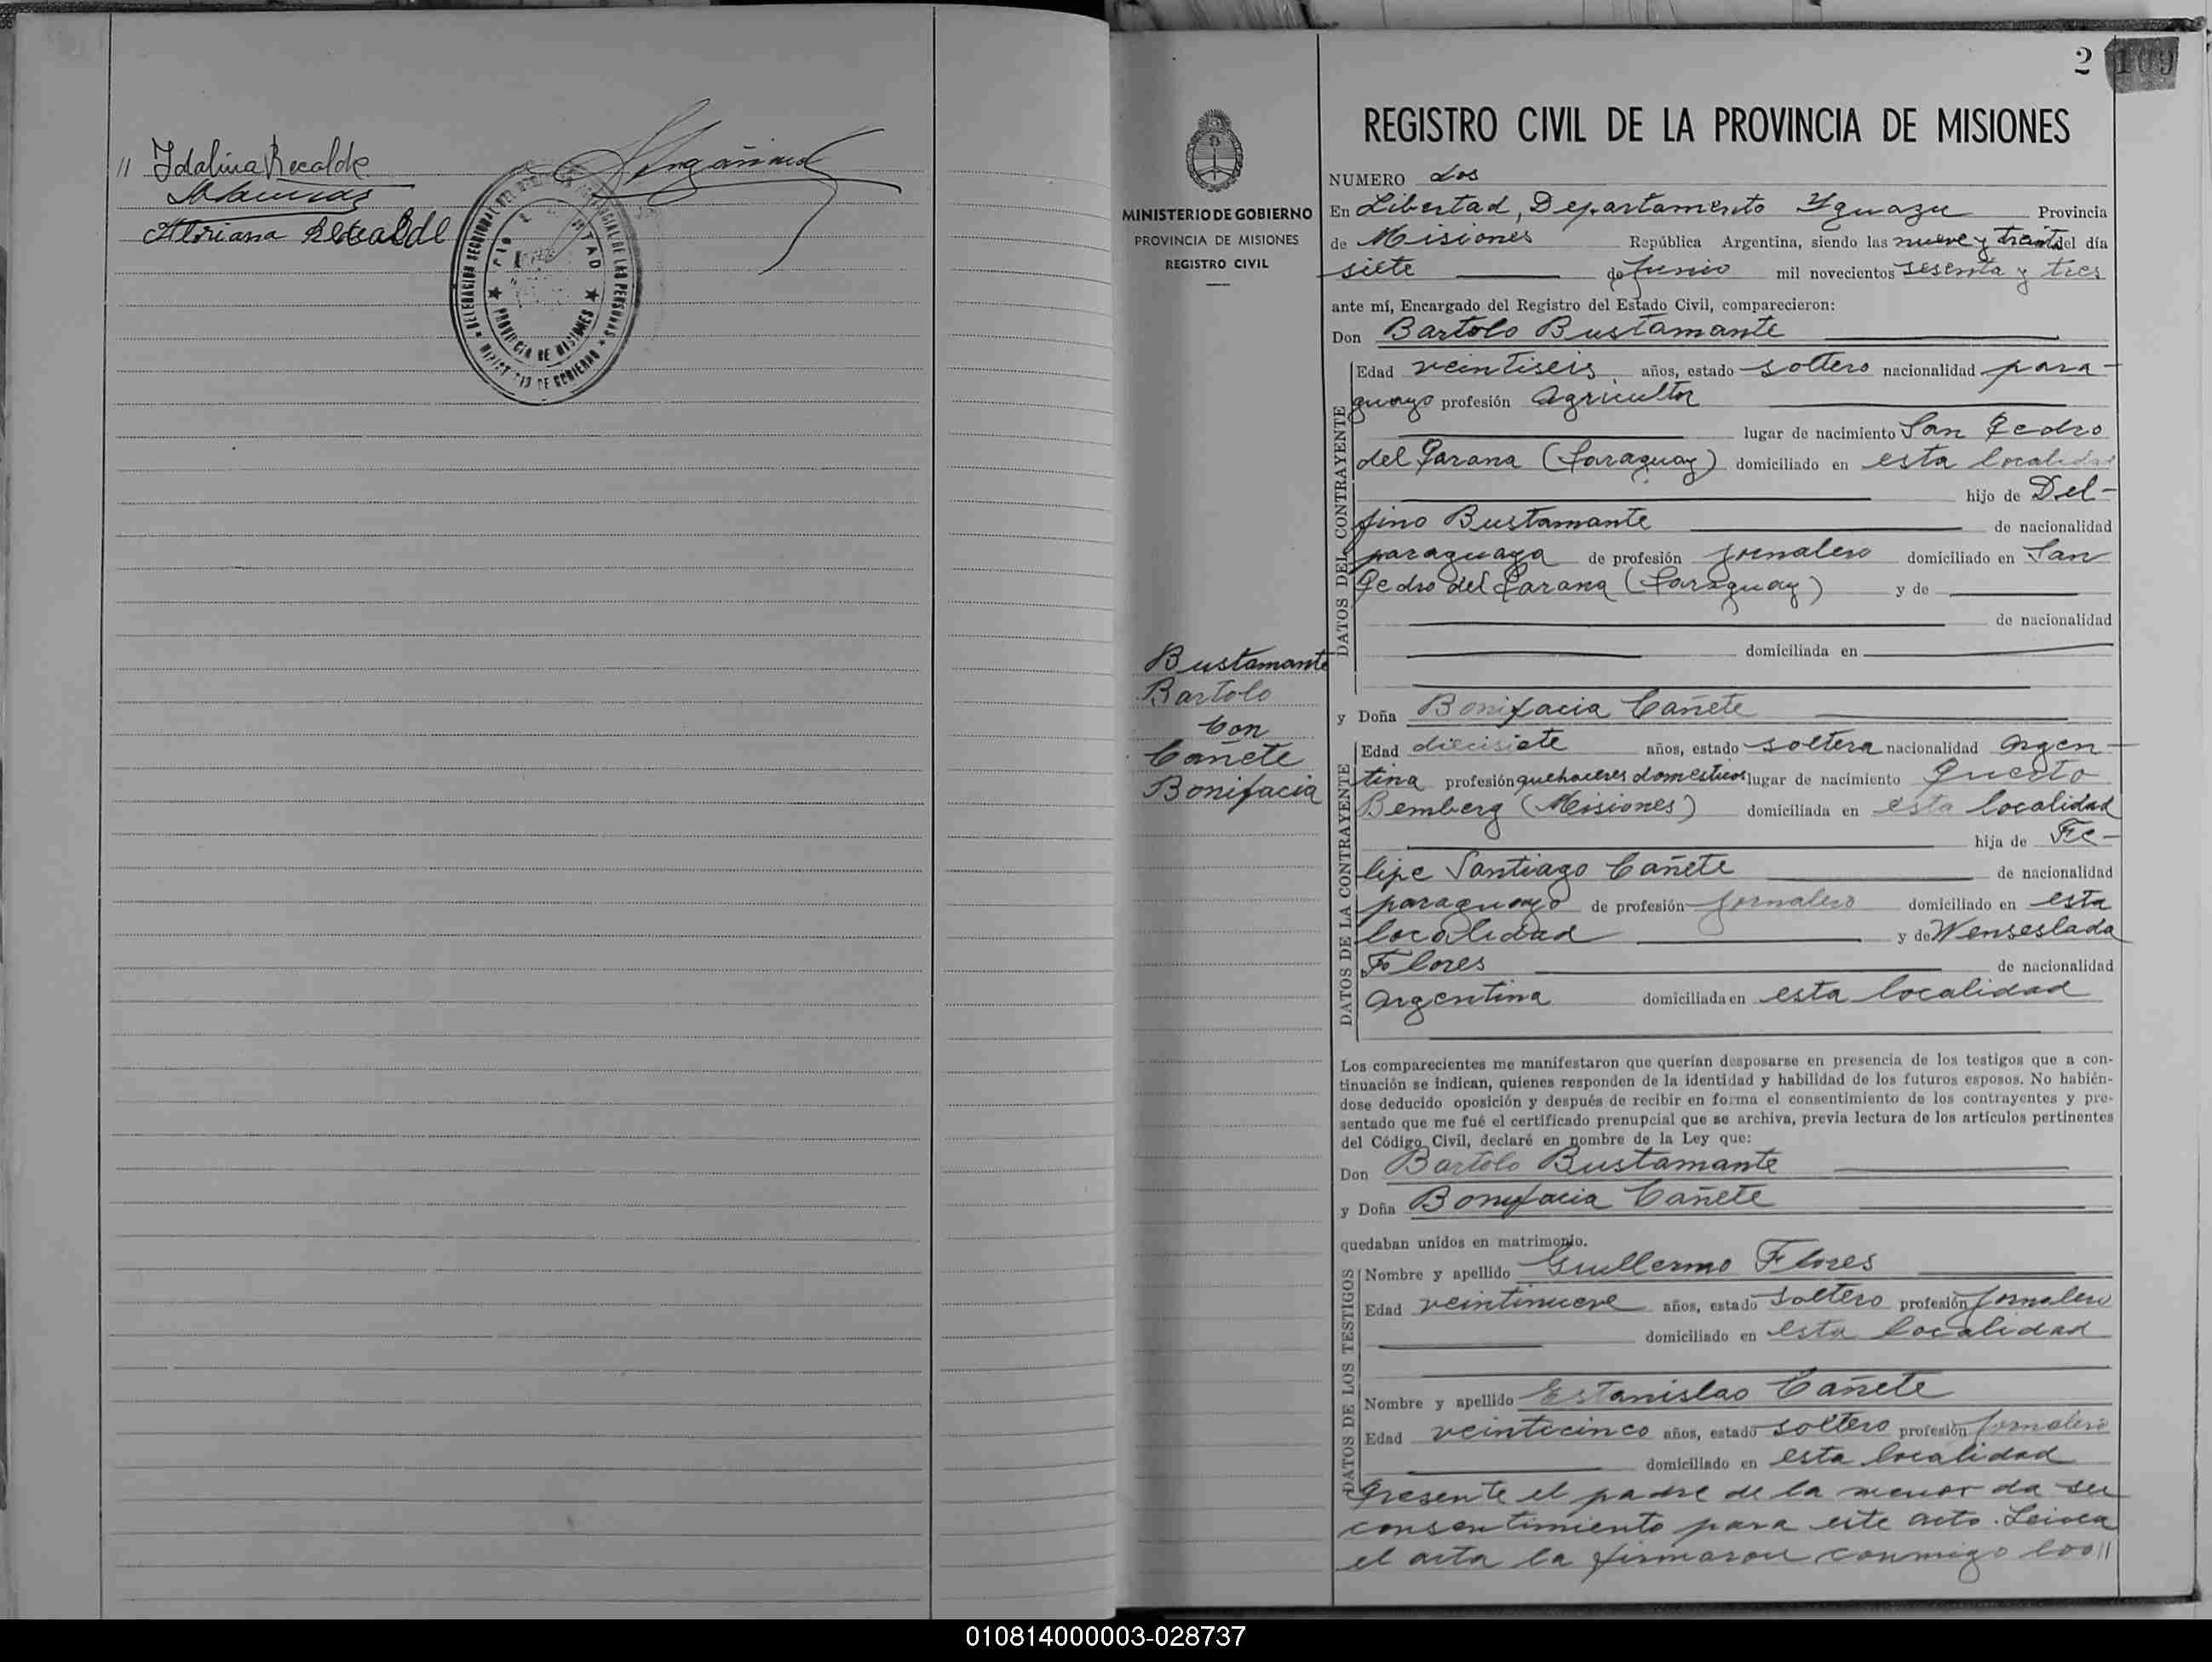 // Idalina Recalde
REGISTRO CIVIL DE LAS PERSONAS
PROVINCIA DE MISIONES
MINISTERIO DE GOBIERNO
2 109
MINISTERIO DE GOBIERNO
PROVINCIA DE MISIONES
REGISTRO CIVIL
Bustamante
Bartolo
Con
Cañete
Bonifacia
REGISTRO CIVIL DE LA PROVINCIA DE MISIONES
NUMERO dos
En Libertad, Departamento Yguazu Provincia
de Misiones República Argentina, siendo las nueve y treinta del día
siete de Junio mil novecientos sesenta y tres
ante mí, Encargado del Registro del Estado Civil, comparecieron:
Don Bartolo Bustamante
DATOS DEL CONTRAYENTE
Edad veintiseis años, estado soltero nacionalidad para-
guayo profesión Agricultor
lugar de nacimiento San Pedro
del Parana (Paraguay) domiciliado en esta localidad
hijo de Del-
fino Bustamante de nacionalidad
paraguaya de profesión jornalero domiciliado en San
Pedro del Parana (Paraguay) y de
de nacionalidad
domiciliada en
y Doña Bonifacia Cañete
DATOS DE LA CONTRAYENTE
Edad diecisiete años, estado soltera nacionalidad Argen-
tina profesión quehaceres domesticos lugar de nacimiento Puerto
Bemberg (Misiones) domiciliada en esta localidad
hija de Fe-
lipe Santiago Cañete de nacionalidad
paraguayo de profesión jornalero domiciliado en esta
localidad y de Wenseslada
Flores de nacionalidad
Argentina domiciliada en esta localidad
Los comparecientes me manifestaron que querían desposarse en presencia de los testigos que a con-
tinuación se indican, quienes responden de la identidad y habilidad de los futuros esposos. No habién-
dose deducido oposición y después de recibir en forma el consentimiento de los contrayentes y pre-
sentado que me fué el certificado prenupcial que se archiva, previa lectura de los artículos pertinentes
del Código Civil, declaré en nombre de la Ley que:
Don Bartolo Bustamante
y Doña Bonifacia Cañete
quedaban unidos en matrimonio.
DATOS DE LOS TESTIGOS
Nombre y apellido Guillermo Flores
Edad veintinueve años, estado soltero profesión jornalero
domiciliado en esta localidad
Nombre y apellido Estanislao Cañete
Edad veinticinco años, estado soltero profesión jornalero
domiciliado en esta localidad
Presente el padre de la menor da su
consentimiento para este acto. Leida
el acta la firmaron conmigo los //
010814000003-028737